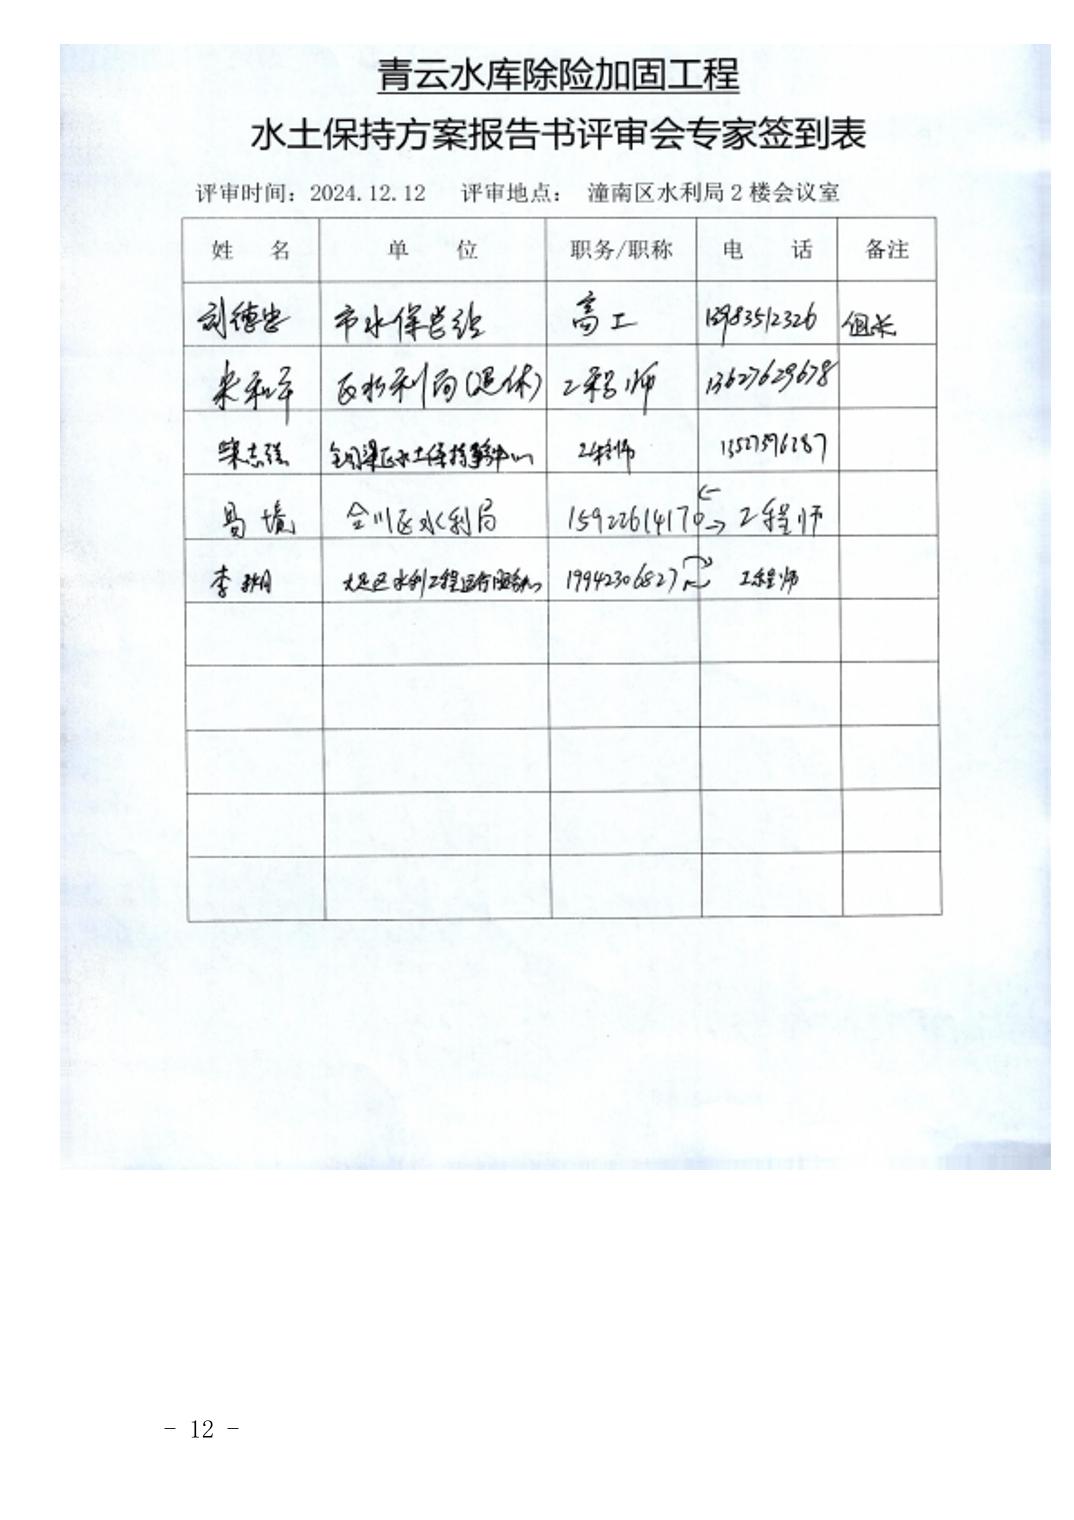 青云水库除险加固工程
水土保持方案报告书评审会专家签到表
评审时间：2024.12.12 评审地点： 潼南区水利局2楼会议室
姓 名 单 位 职务/职称 电 话 备注
刘德忠 市水保总站 高工 13983512326 组长
区水利局(退休) 工程师 13627629678
志强 工程师
易境 合川区水利局 15922614170 工程师
李 大足区水利工程运行服务中心 19942306827 工程师
- 12 -